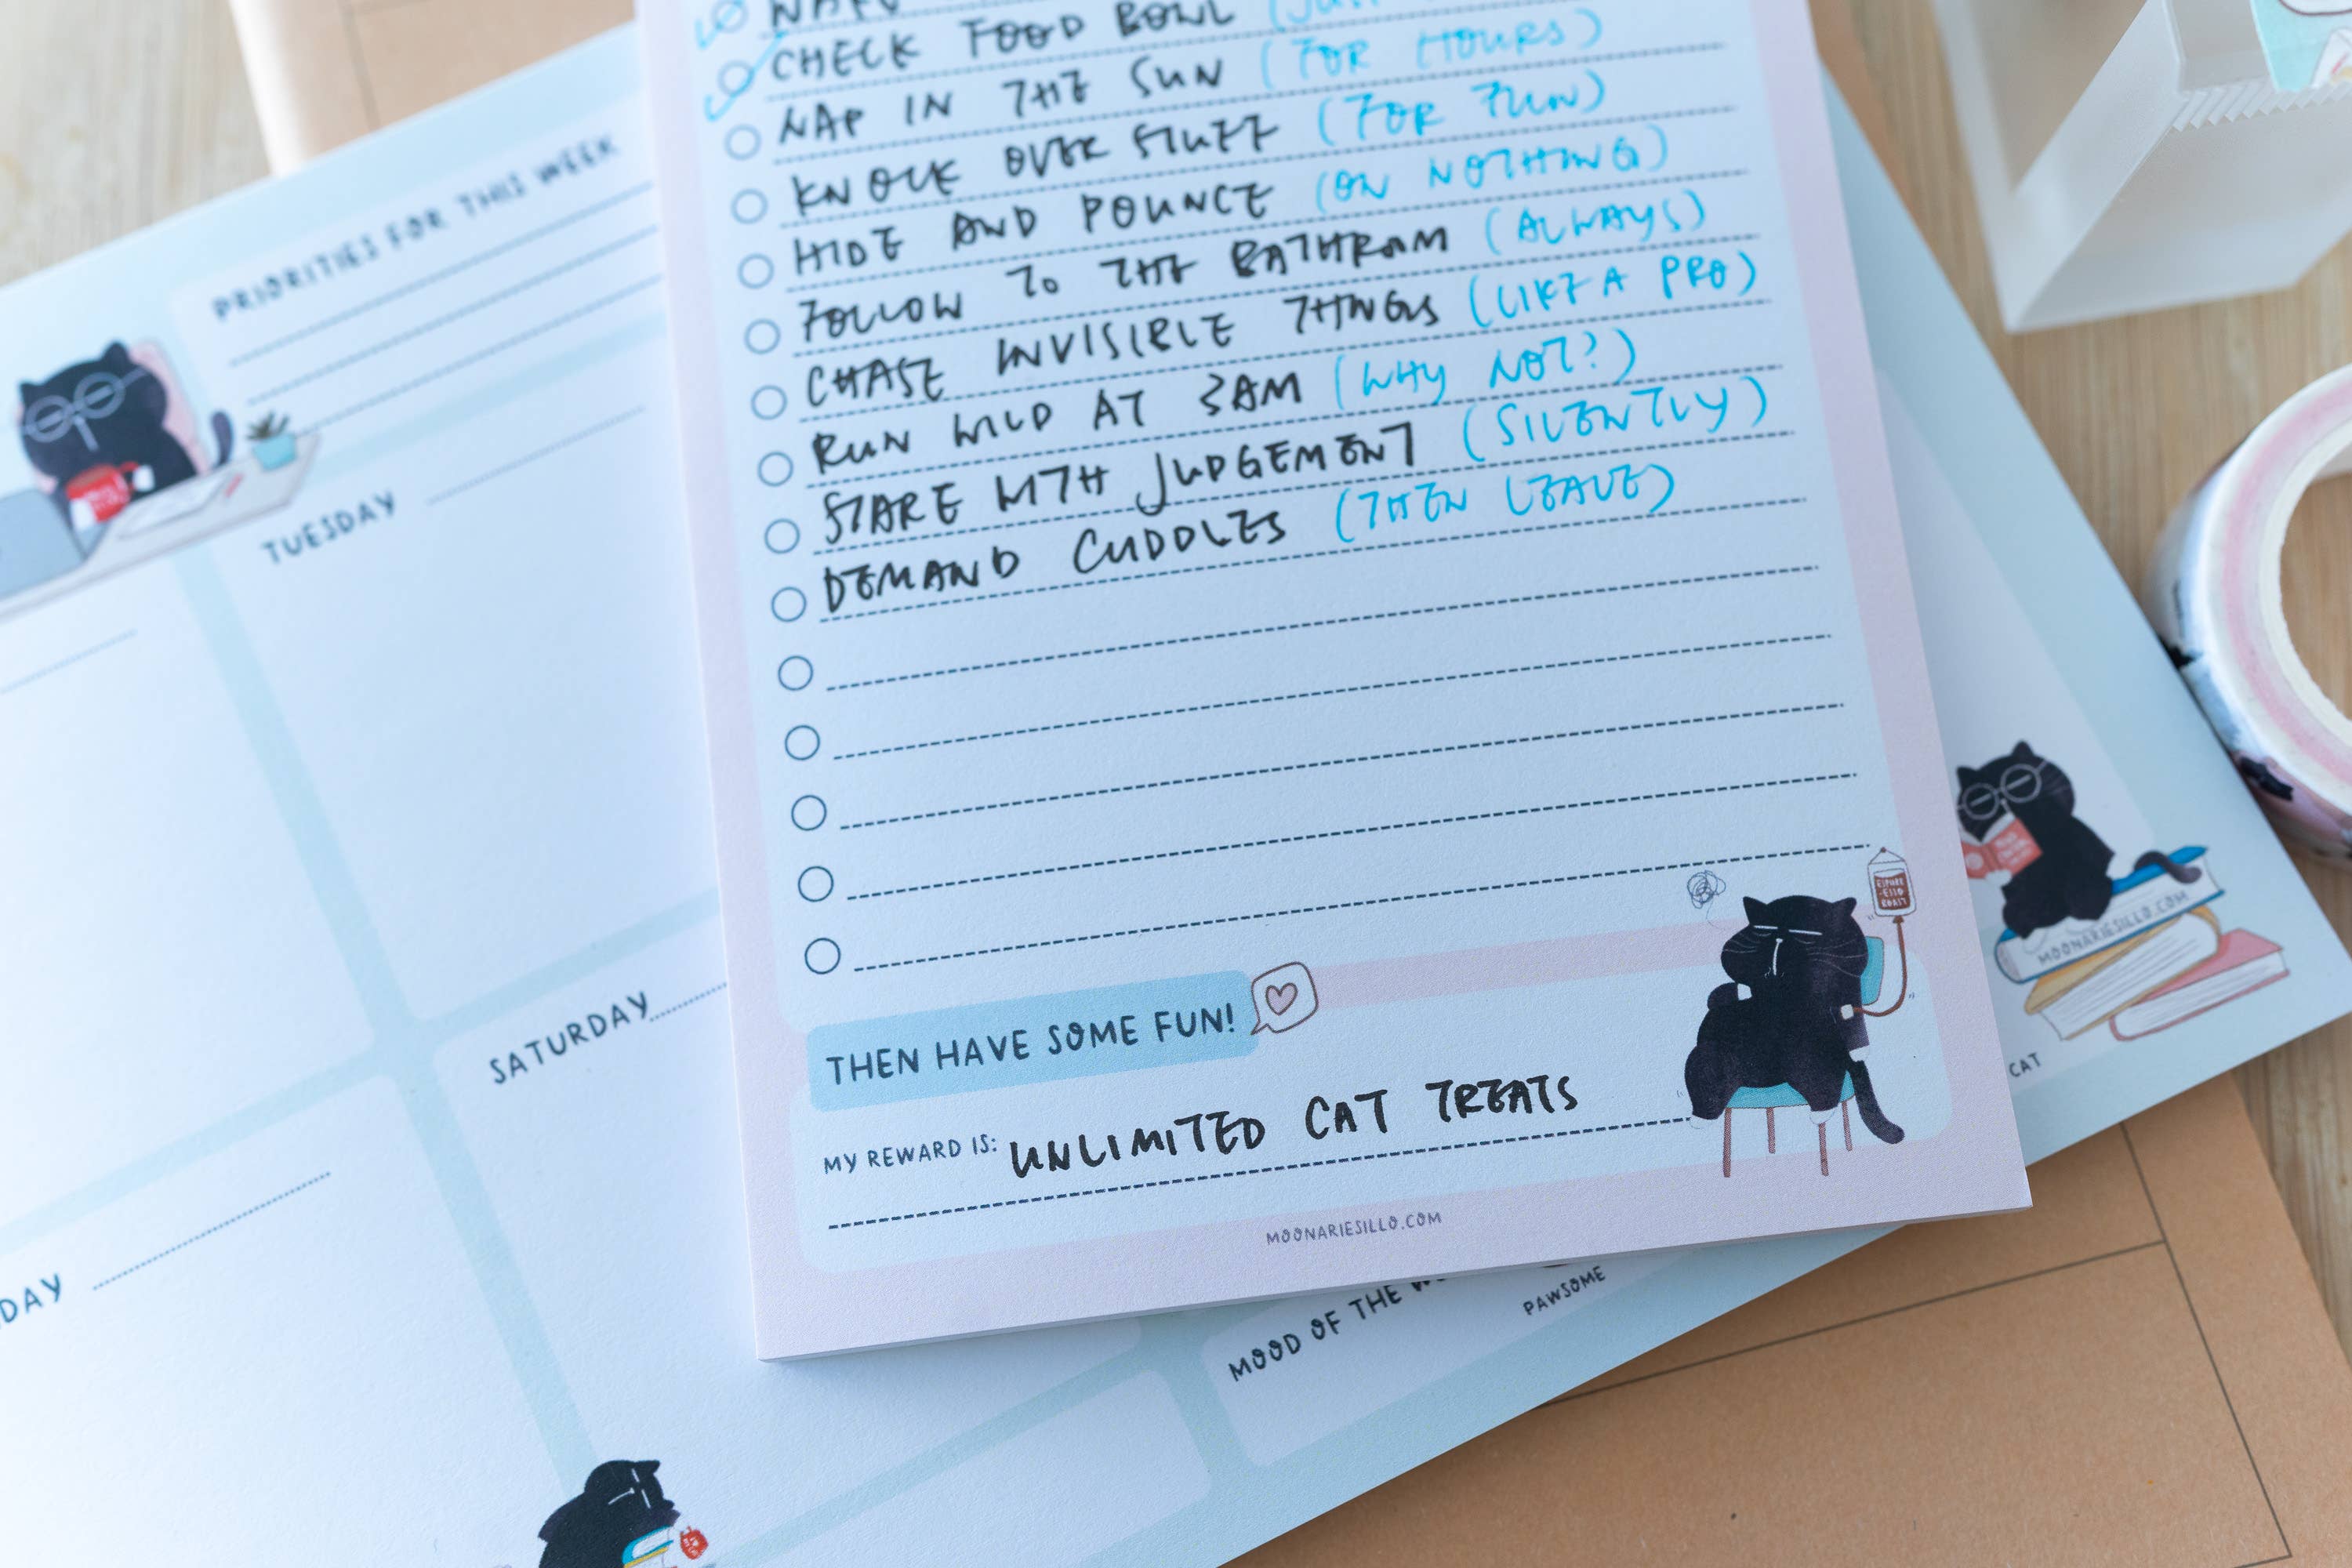 CHECK FOOD BOWL
NAP IN THE SUN (FOR HOURS)
KNOCK OVER STUFF (FOR FUN)
HIDE AND POUNCE (ON NOTHING)
FOLLOW TO THE BATHROOM (ALWAYS)
CHASE INVISIBLE THINGS (LIKE A PRO)
RUN WILD AT 3AM (WHY NOT?)
STARE WITH JUDGEMENT (SILENTLY)
DEMAND CUDDLES (THEN LEAVE)
THEN HAVE SOME FUN!
MY REWARD IS: UNLIMITED CAT TREATS
MOONARIESILLO.COM
PRIORITIES FOR THIS WEEK
TUESDAY
SATURDAY
DAY
MOOD OF THE
PAWSOME
MOONARIESILLO.COM
CAT